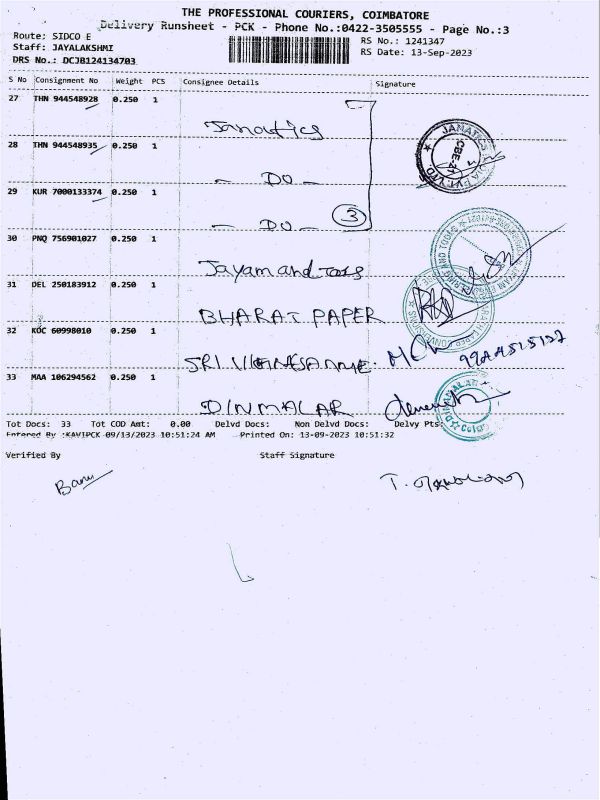 THE PROFESSIONAL COURIERS, COIMBATORE
Delivery Runsheet - PCK - Phone No.:0422-3505555 - Page No.:3
Route: SIDCO E
RS No.: 1241347
Staff: JAYALAKSHMI
RS Date: 13-Sep-2023
DRS No.: DCJB124134703
S No Consignment No Weight PCS Consignee Details Signature
27 THN 944548928 0.250 1
Janatics
28 THN 944548935 0.250 1
- DO -
29 KUR 7000133374 0.250 1
- DO - 3
30 PNQ 756901027 0.250 1
Jayam and
31 DEL 250183912 0.250 1
BHARAT PAPER
32 KOC 60998010 0.250 1
SRI
33 MAA 106294562 0.250 1
DINMALAR
Tot Docs: 33 Tot COD Amt: 0.00 Delvd Docs: Non Delvd Docs: Delvy Pts:
Entered By :KAVIPCK 09/13/2023 10:51:24 AM Printed On: 13-09-2023 10:51:32
Verified By Staff Signature
Banu